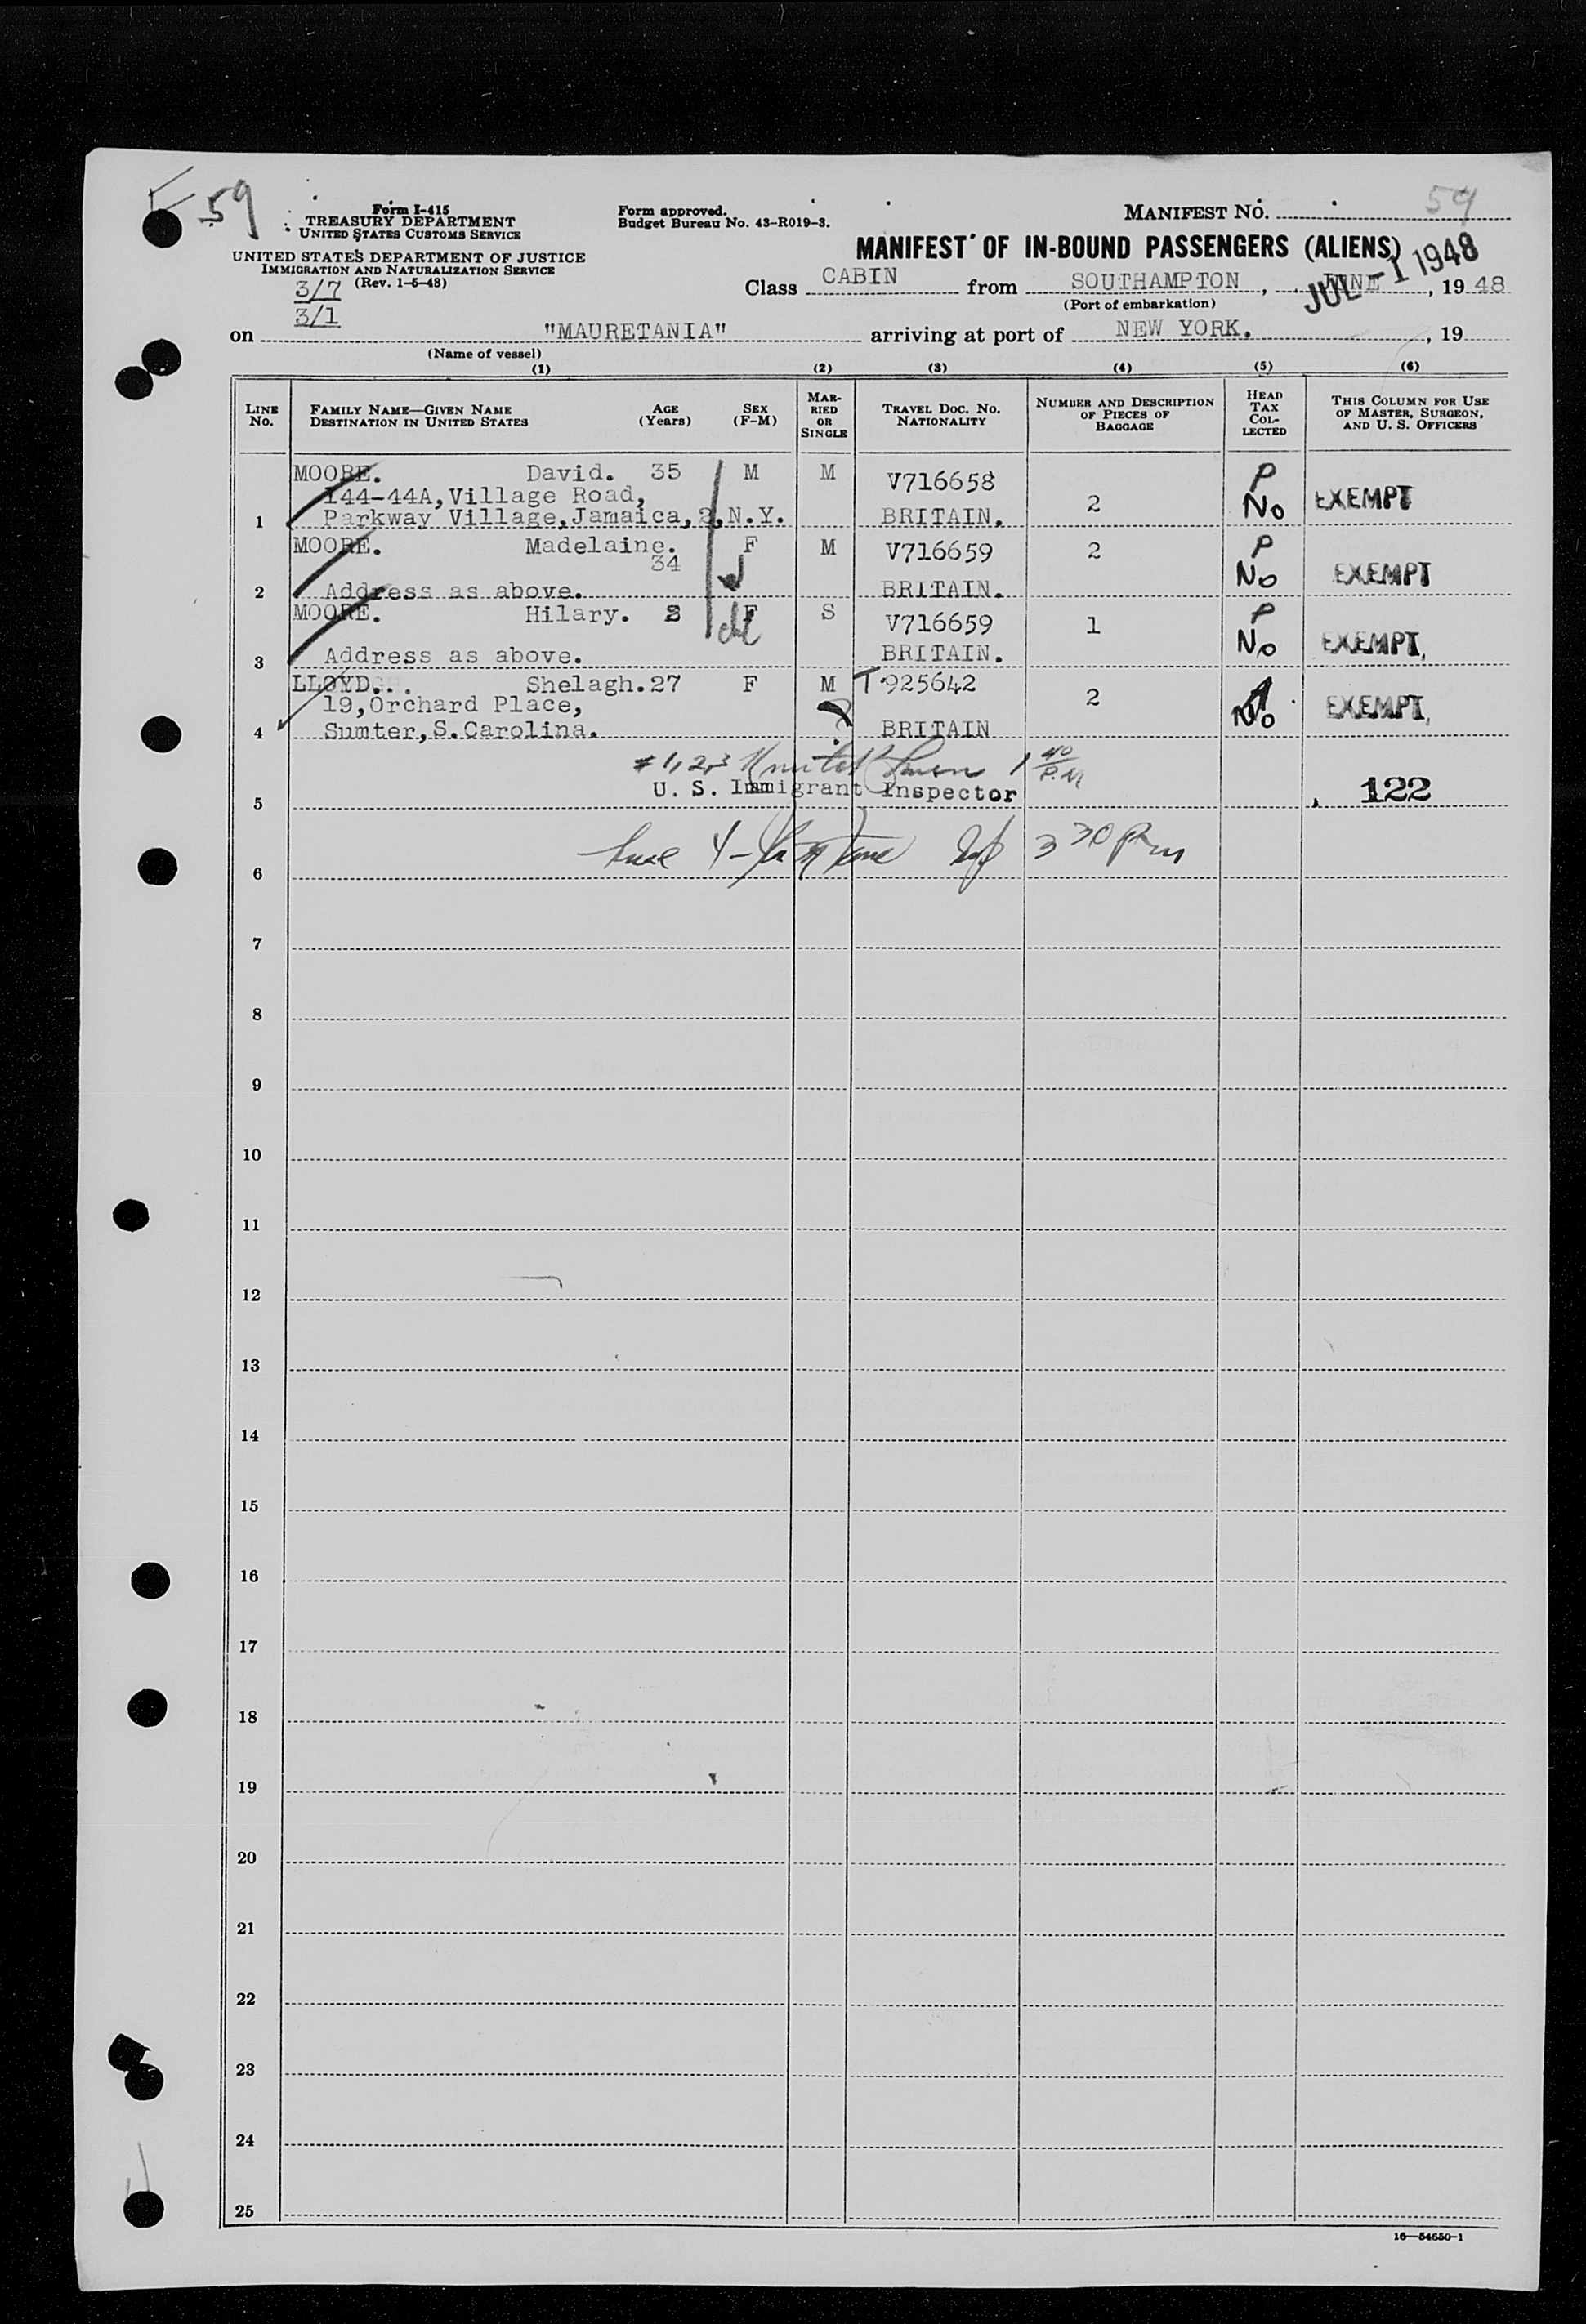 59
Form I-415
TREASURY DEPARTMENT
UNITED STATES CUSTOMS SERVICE
UNITED STATES DEPARTMENT OF JUSTICE
IMMIGRATION AND NATURALIZATION SERVICE
(Rev. 1-5-48)
3/7
3/1
Form approved.
Budget Bureau No. 43-R019-3.
MANIFEST NO. 59
MANIFEST OF IN-BOUND PASSENGERS (ALIENS)
Class CABIN from SOUTHAMPTON, JUNE, 19 48
JUL -1 1948
(Port of embarkation)
on "MAURETANIA" arriving at port of NEW YORK., 19
(Name of vessel)
(1) (2) (3) (4) (5) (6)
LINE No.
FAMILY NAME—GIVEN NAME
DESTINATION IN UNITED STATES
AGE (Years)
SEX (F-M)
MARRIED OR SINGLE
TRAVEL DOC. NO.
NATIONALITY
NUMBER AND DESCRIPTION OF PIECES OF BAGGAGE
HEAD TAX COLLECTED
THIS COLUMN FOR USE OF MASTER, SURGEON, AND U. S. OFFICERS
MOORE. David. 35 M M V716658 2 P
144-44A, Village Road,
1 Parkway Village, Jamaica, 2, N.Y. BRITAIN. No EXEMPT
MOORE. Madelaine. 34 F M V716659 2 P
2 Address as above. BRITAIN. No EXEMPT
MOORE. Hilary. 3 F S V716659 1 P
3 Address as above. BRITAIN. No EXEMPT
LLOYD... Shelagh. 27 F M T 925642 2
19, Orchard Place,
4 Sumter, S. Carolina. BRITAIN No EXEMPT
# 1, 2, 3 1 40 P.M
U. S. Immigrant Inspector
5 122
4 3 30 Pm
6
7
8
9
10
11
12
13
14
15
16
17
18
19
20
21
22
23
24
25
16—54650-1